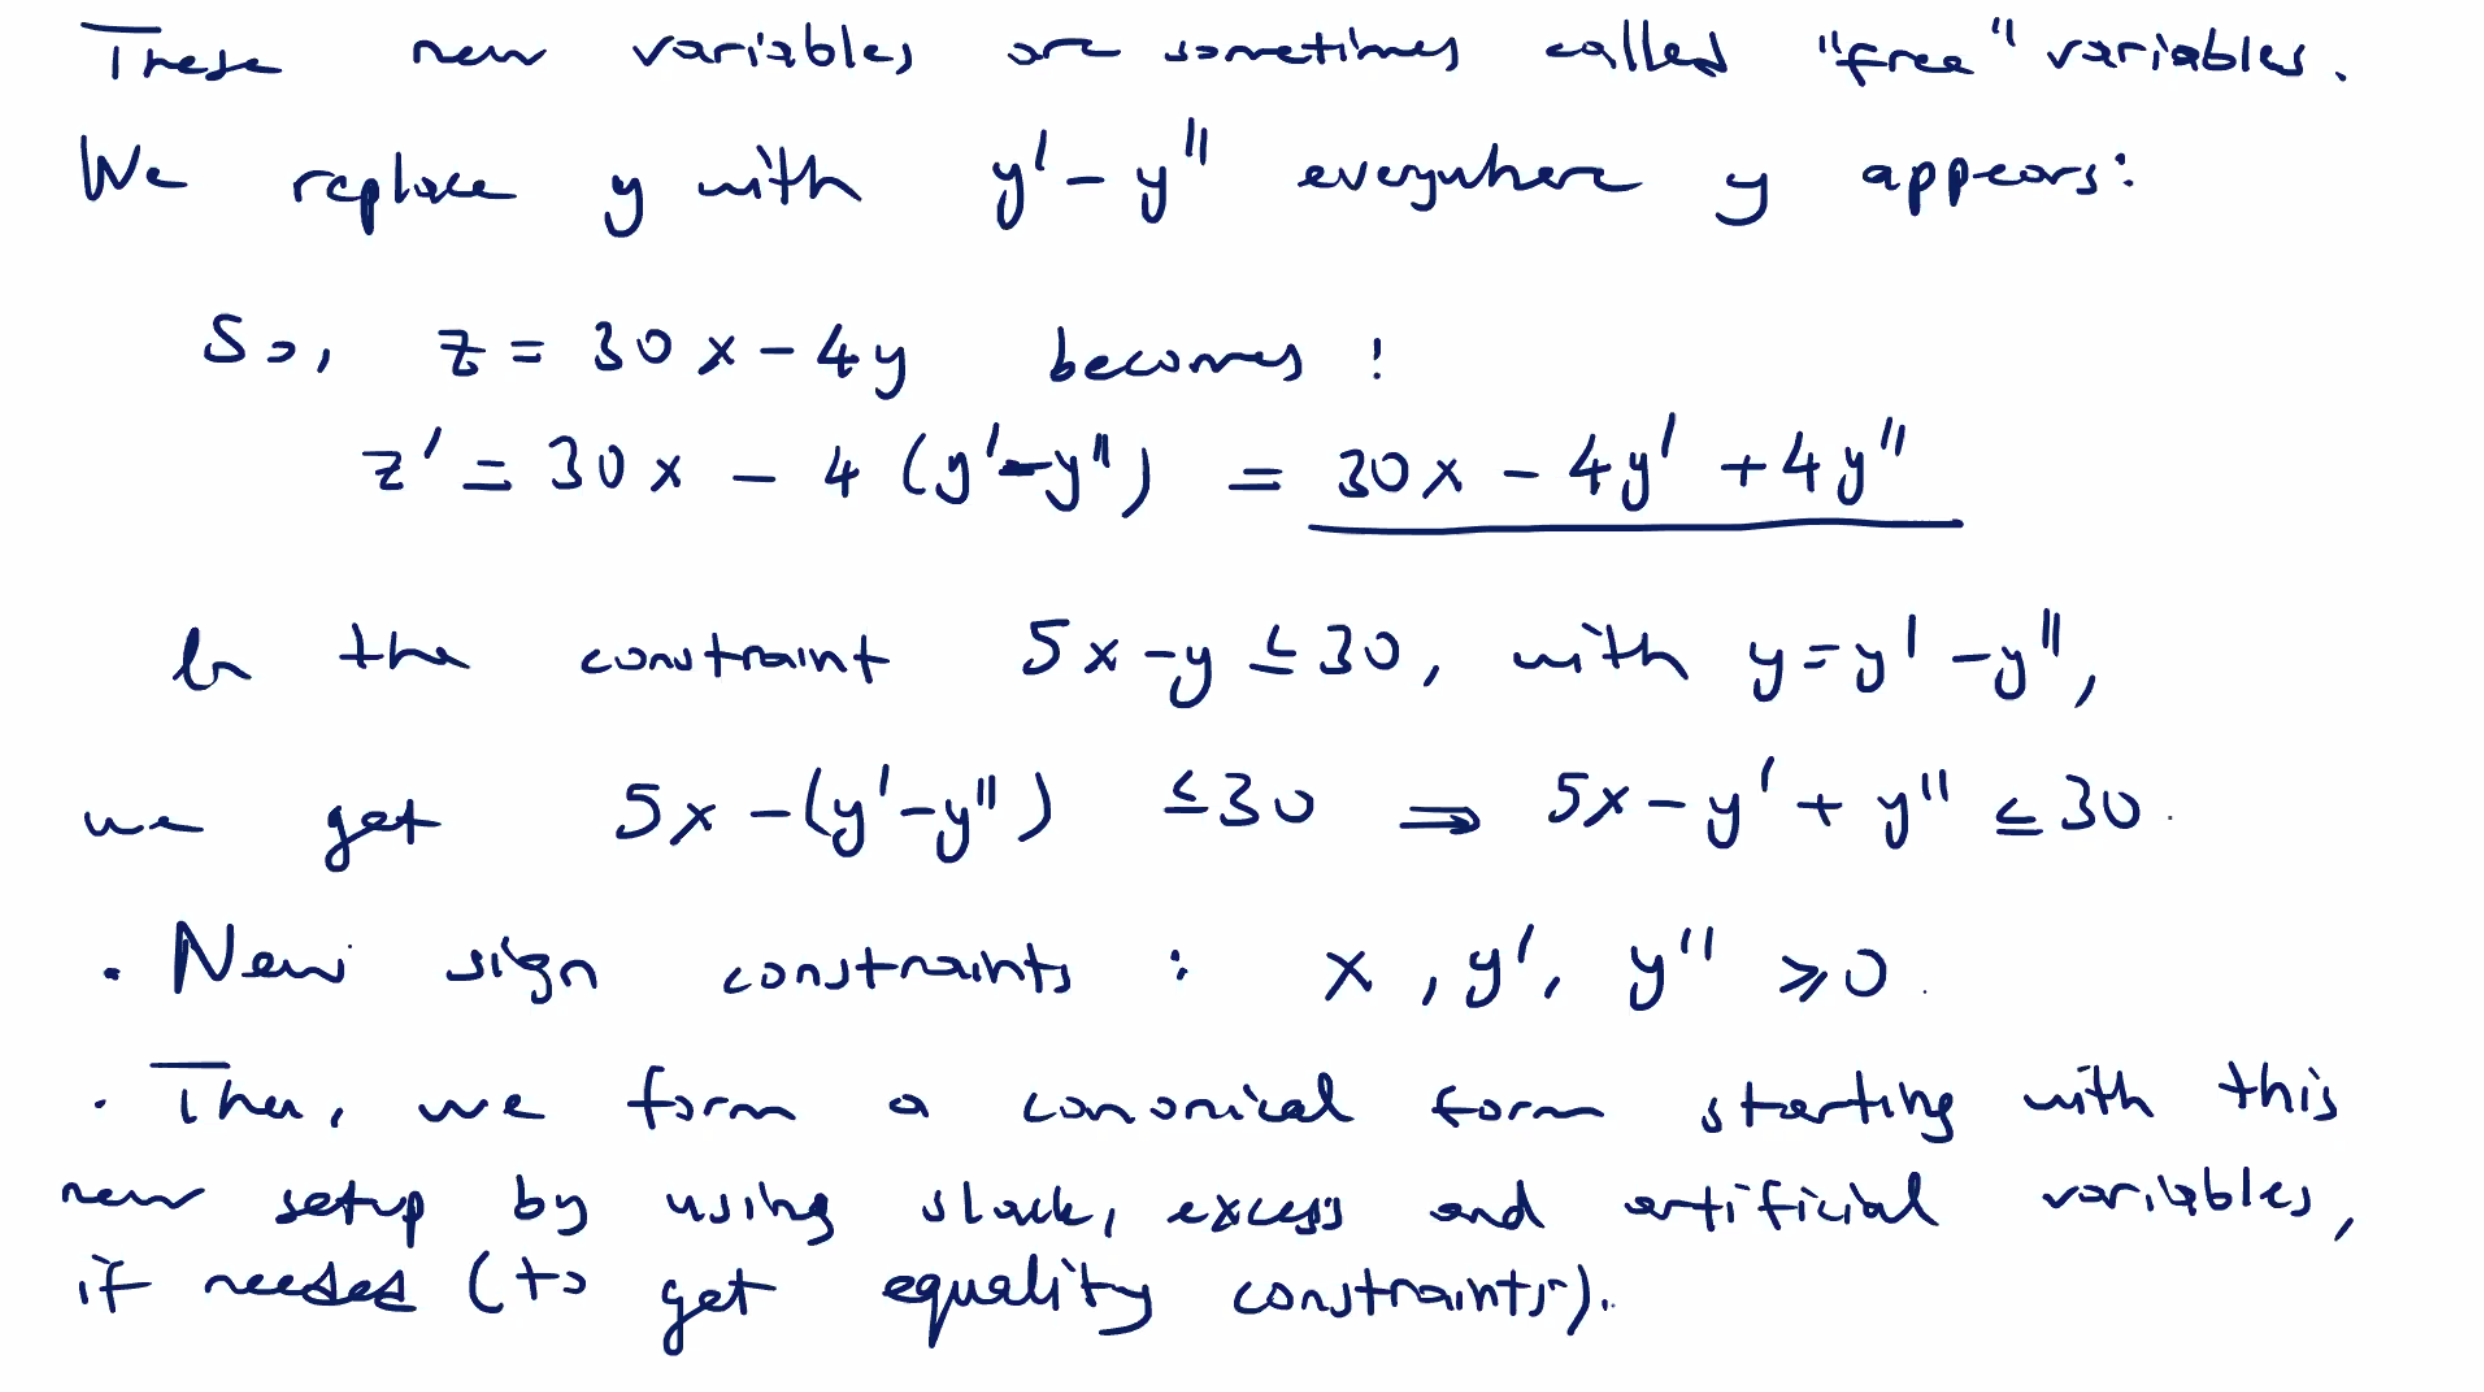 These new variables are sometimes called "free" variables.
We replace y with y' - y" everywhere y appears:
So, z = 30x - 4y becomes:
z' = 30x - 4 (y' - y") = 30x - 4y' + 4y"
In the constraint 5x - y ≤ 30, with y = y' - y",
we get 5x - (y' - y") ≤ 30 ⇒ 5x - y' + y" ≤ 30.
• New sign constraints : x, y', y" ≥ 0.
• Then, we form a canonical form starting with this
new setup by using slack, excess and artificial variables,
if needed (to get equality constraints).